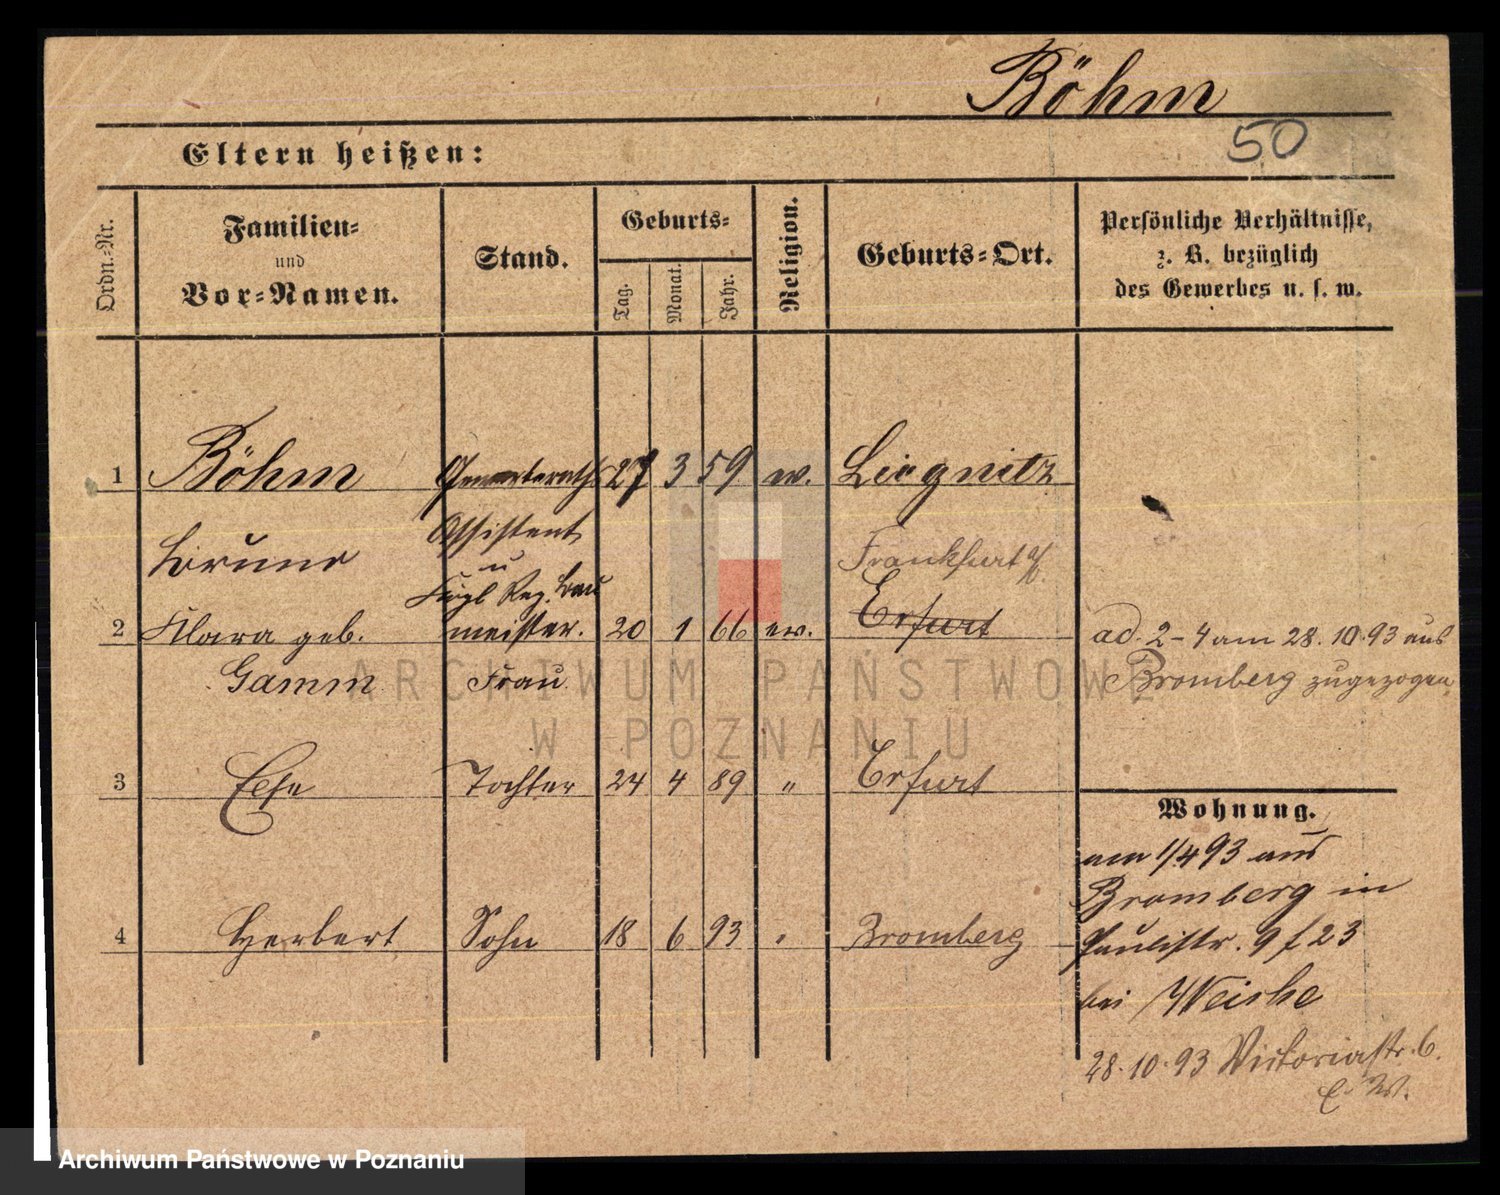 Böhm
50
Eltern heißen:
Ordn.-Nr.
Familien-
und
Vor-Namen.
Stand.
Geburts-
Tag.
Monat.
Jahr.
Religion.
Geburts-Ort.
Persönliche Verhältnisse,
z. B. bezüglich
des Gewerbes u. s. w.
1 Böhm 27 3 59 ev. Liegnitz
Assistent
Bruno u Frankfurt a/
Kngl Reg. Bau
2 Klara geb. meister. 20 1 66 ev. Erfurt ad. 2-4 am 28.10.93 aus
Gamm Frau Bromberg zugezogen
3 Else Tochter 24 4 89 " Erfurt
Wohnung.
am 1/4 93 aus
Bromberg in
4 Herbert Sohn 18 6 93 " Bromberg Paulistr. 9 f 23
bei Weiske
28.10.93 Victoriastr. 6.
ARCHIWUM PAŃSTWOWE
W POZNANIU
Archiwum Państwowe w Poznaniu